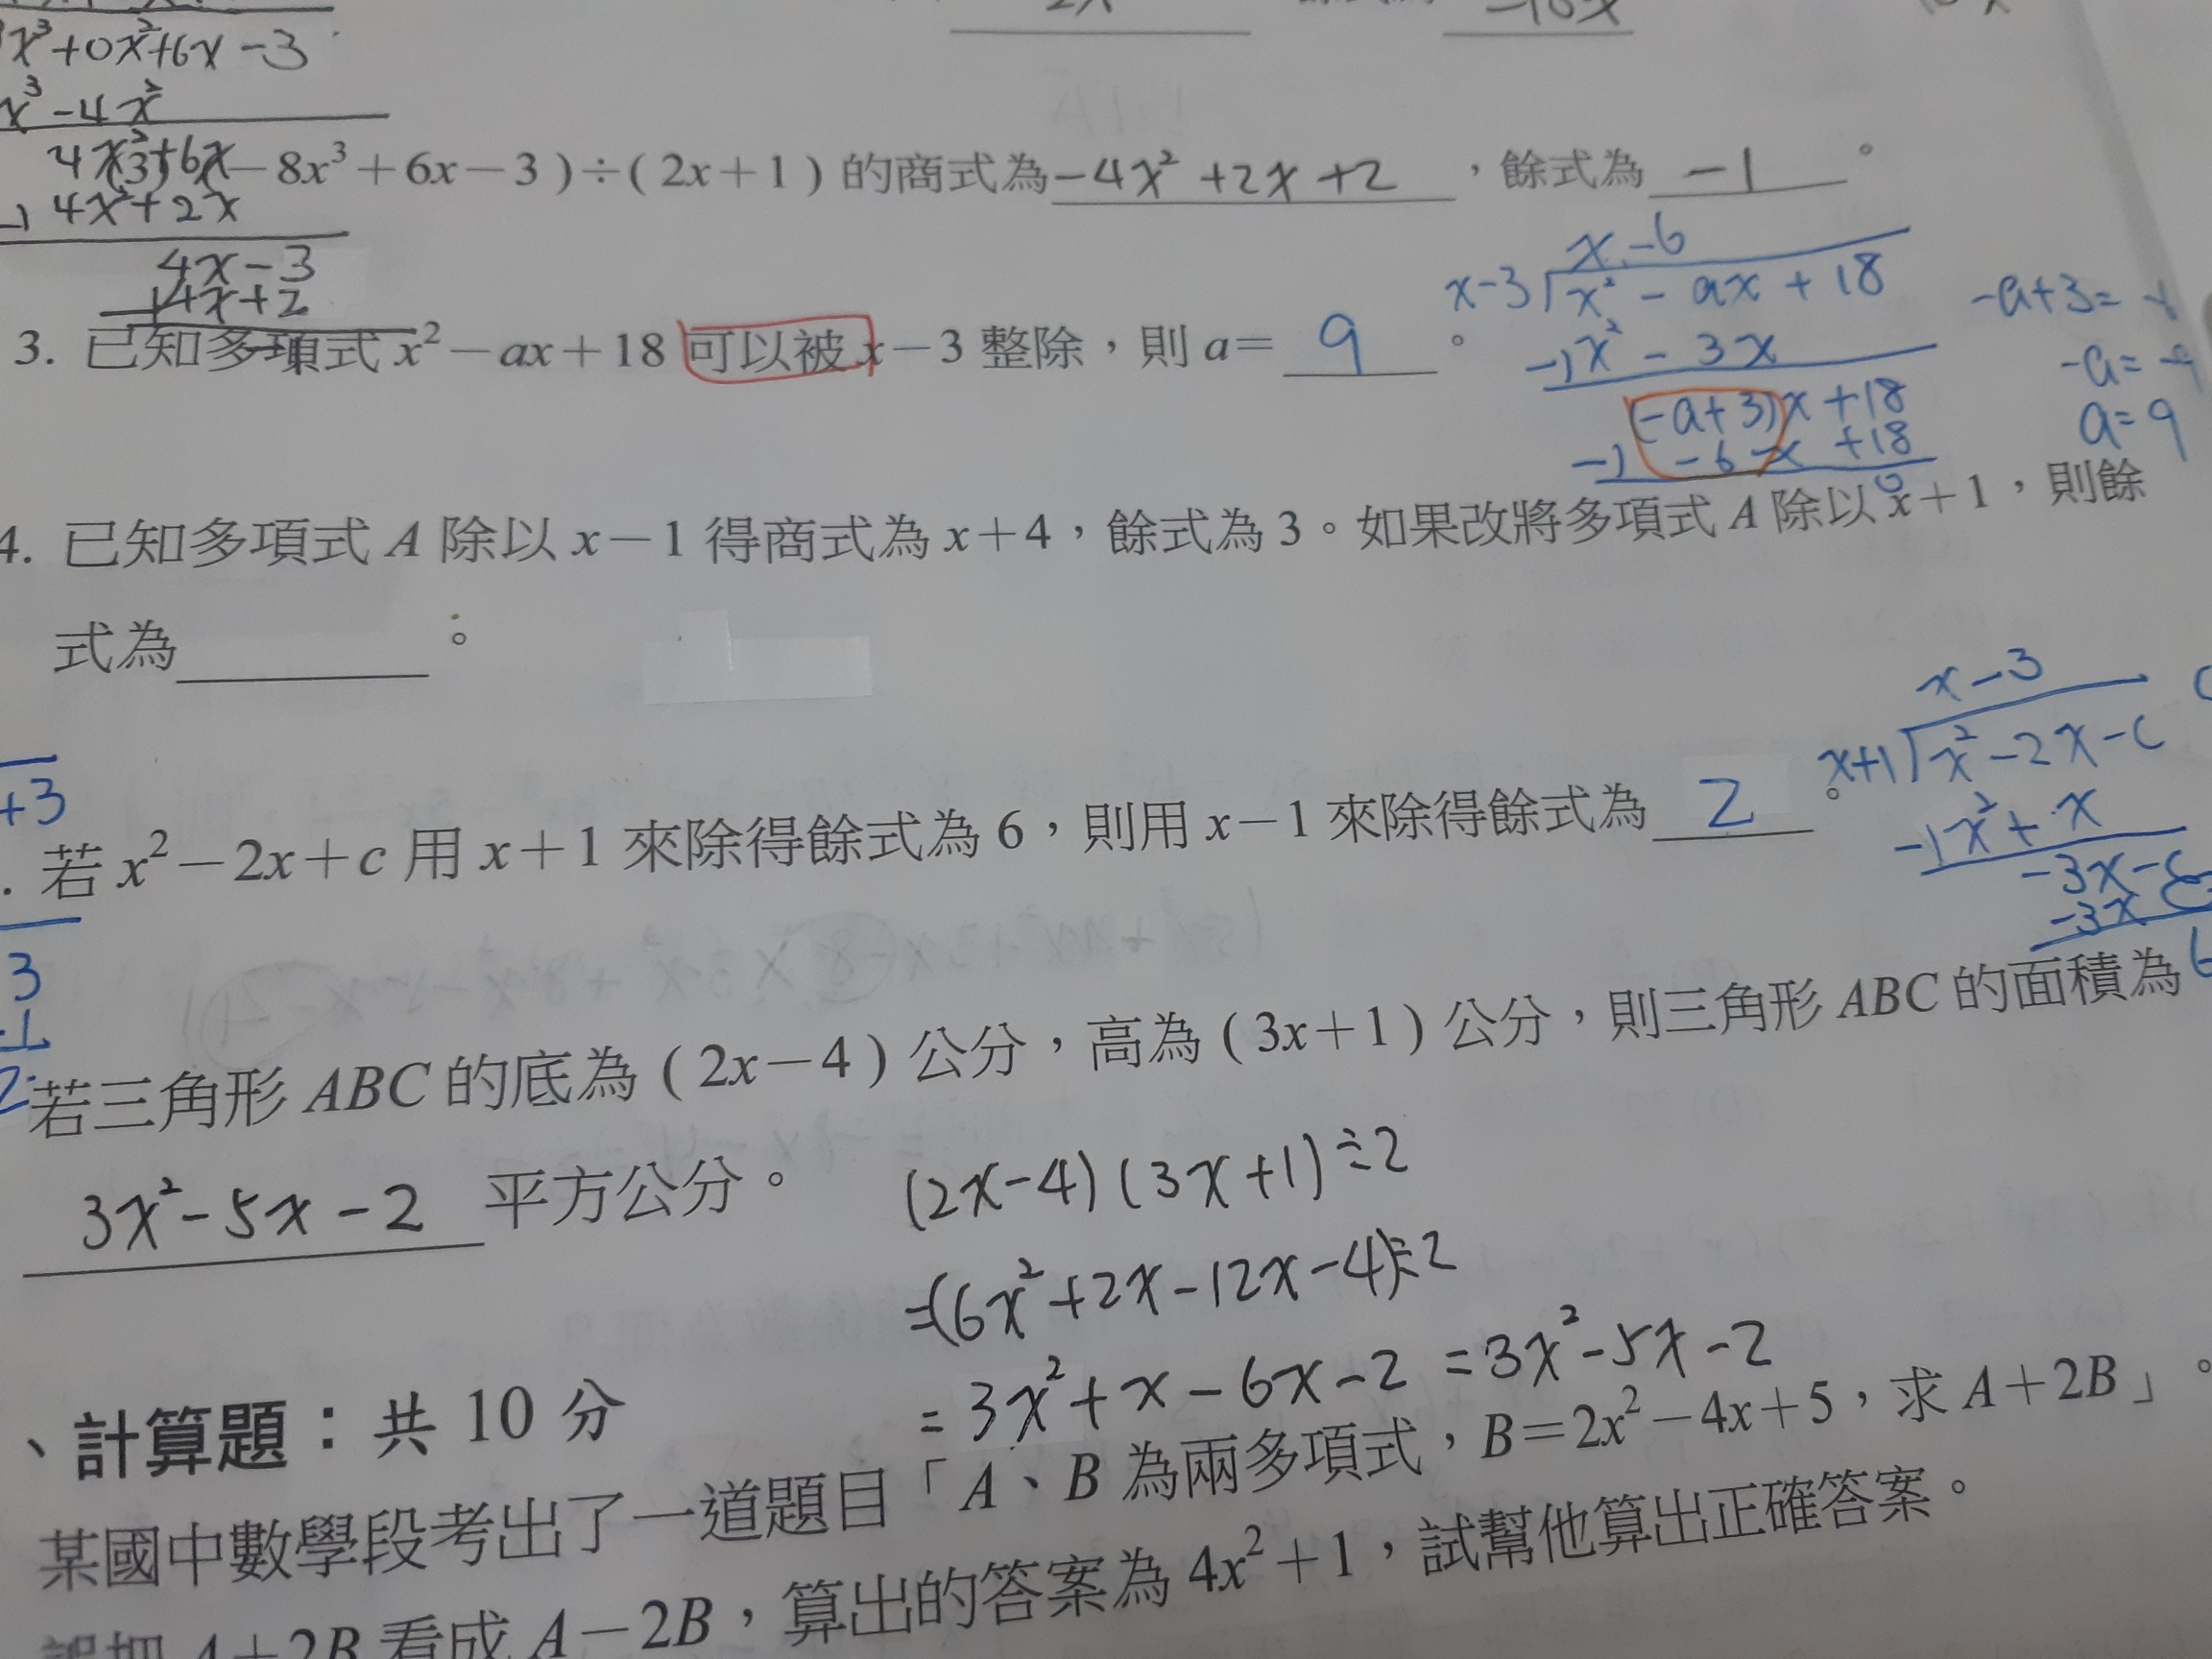 x³+0x²+6x-3
x³-4x²
4x²+6x
-8x³+6x-3)÷(2x+1)的商式為-4x²+2x+2，餘式為-1。
-)4x²+2x
4x-3
-)4x+2
3. 已知多項式x²-ax+18可以被x-3整除，則a=9。
x-6
x-3 x²-ax+18
-)x²-3x
(-a+3)x+18
-)-6x+18
0
-a+3=
-a=-9
a=9
4. 已知多項式A除以x-1得商式為x+4，餘式為3。如果改將多項式A除以x+1，則餘
式為 。
x-3
x+1 x²-2x-c
-)x²+x
-3x-c
-3x
6
+3
. 若x²-2x+c用x+1來除得餘式為6，則用x-1來除得餘式為2。
3
若三角形ABC的底為(2x-4)公分，高為(3x+1)公分，則三角形ABC的面積為
3x²-5x-2平方公分。
(2x-4)(3x+1)÷2
=(6x²+2x-12x-4)÷2
=3x²+x-6x-2=3x²-5x-2
、計算題：共10分
某國中數學段考出了一道題目「A、B為兩多項式，B=2x²-4x+5，求A+2B」。
誤把A+2B看成A-2B，算出的答案為4x²+1，試幫他算出正確答案。